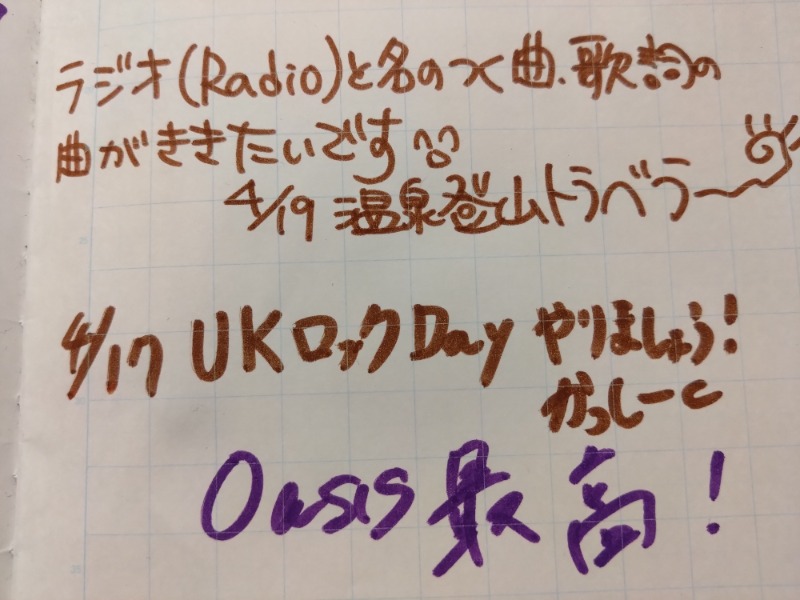 ラジオ(Radio)と名のつく曲、歌詞の
曲がききたいです
4/19 温泉登山トラベラー
4/17 UKロックDay やりましょう!
かっしーと
Oasis最高!